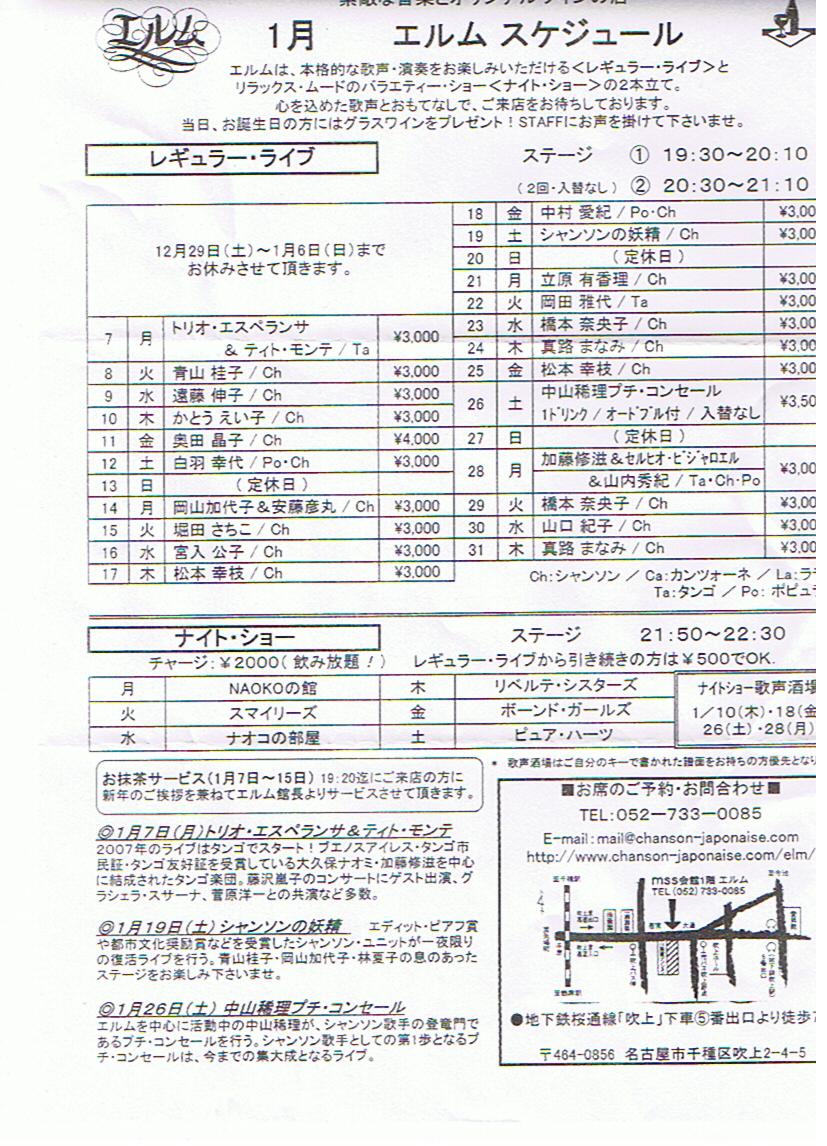 エルム
1月 エルム スケジュール
エルムは、本格的な歌声・演奏をお楽しみいただける<レギュラー・ライブ>と
リラックス・ムードのバラエティー・ショー<ナイト・ショー>の2本立て。
心を込めた歌声とおもてなしで、ご来店をお待ちしております。
当日、お誕生日の方にはグラスワインをプレゼント!STAFFにお声を掛けて下さいませ。
レギュラー・ライブ ステージ ① 19:30~20:10
(2回・入替なし) ② 20:30~21:10
12月29日(土)~1月6日(日)まで
お休みさせて頂きます。
7 月 トリオ・エスペランサ
& ティト・モンテ / Ta ¥3,000
8 火 青山 桂子 / Ch ¥3,000
9 水 遠藤 伸子 / Ch ¥3,000
10 木 かとう えい子 / Ch ¥3,000
11 金 奥田 晶子 / Ch ¥4,000
12 土 白羽 幸代 / Po・Ch ¥3,000
13 日 (定休日)
14 月 岡山加代子&安藤彦丸 / Ch ¥3,000
15 火 堀田 さちこ / Ch ¥3,000
16 水 宮入 公子 / Ch ¥3,000
17 木 松本 幸枝 / Ch ¥3,000
18 金 中村 愛紀 / Po・Ch ¥3,00
19 土 シャンソンの妖精 / Ch ¥3,00
20 日 (定休日)
21 月 立原 有香理 / Ch ¥3,00
22 火 岡田 雅代 / Ta ¥3,00
23 水 橋本 奈央子 / Ch ¥3,00
24 木 真路 まなみ / Ch ¥3,00
25 金 松本 幸枝 / Ch ¥3,00
26 土 中山稀理プチ・コンセール
1ドリンク / オードブル付 / 入替なし ¥3,50
27 日 (定休日)
28 月 加藤修滋&セルヒオ・ビジャロエル
&山内秀紀 / Ta・Ch・Po ¥3,00
29 火 橋本 奈央子 / Ch ¥3,00
30 水 山口 紀子 / Ch ¥3,00
31 木 真路 まなみ / Ch ¥3,00
Ch:シャンソン / Ca:カンツォーネ / La:ラ
Ta:タンゴ / Po: ポピュ
ナイト・ショー ステージ 21:50~22:30
チャージ:¥2000(飲み放題!) レギュラー・ライブから引き続きの方は¥500でOK.
月 NAOKOの館 木 リベルテ・シスターズ
火 スマイリーズ 金 ボーンド・ガールズ
水 ナオコの部屋 土 ピュア・ハーツ
ナイトショー歌声酒場
1/10(木)・18(金
26(土)・28(月)
* 歌声酒場はご自分のキーで書かれた譜面をお持ちの方優先とな
お抹茶サービス(1月7日~15日) 19:20迄にご来店の方に
新年のご挨拶を兼ねてエルム館長よりサービスさせて頂きます。
◎1月7日(月)トリオ・エスペランサ&ティト・モンテ
2007年のライブはタンゴでスタート!ブエノスアイレス・タンゴ市
民証・タンゴ友好証を受賞している大久保ナオミ・加藤修滋を中心
に結成されたタンゴ楽団。藤沢嵐子のコンサートにゲスト出演、グ
ラシェラ・スサーナ、菅原洋一との共演など多数。
◎1月19日(土)シャンソンの妖精 エディット・ピアフ賞
や都市文化奨励賞などを受賞したシャンソン・ユニットが一夜限り
の復活ライブを行う。青山桂子・岡山加代子・林夏子の息のあった
ステージをお楽しみ下さいませ。
◎1月26日(土) 中山稀理プチ・コンセール
エルムを中心に活動中の中山稀理が、シャンソン歌手の登竜門で
あるプチ・コンセールを行う。シャンソン歌手としての第1歩となるプ
チ・コンセールは、今までの集大成となるライブ。
■お席のご予約・お問合わせ■
TEL:052-733-0085
E-mail:mail@chanson-japonaise.com
http://www.chanson-japonaise.com/elm/
mss会館1階 エルム
TEL (052)733-0085
●地下鉄桜通線「吹上」下車⑤番出口より徒歩
〒464-0856 名古屋市千種区吹上2-4-5